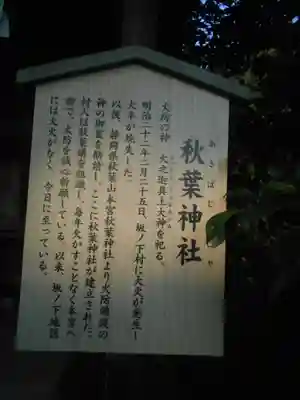 秋葉神社
あきばじんじゃ
火防の神 火之迦具土大神を祀る。
明治二十二年二月二十五日、坂ノ下村に大火が発生し
大半が焼失した。
以後、静岡県秋葉山本宮秋葉神社より火防鎮護の
神の御霊を勧請し、ここに秋葉神社が建立された。
村人は秋葉講を組織し、毎年欠かすことなく本宮へ
詣で、火防を祈願している。以来、坂ノ下地区
には大火がなく、今日に至っている。